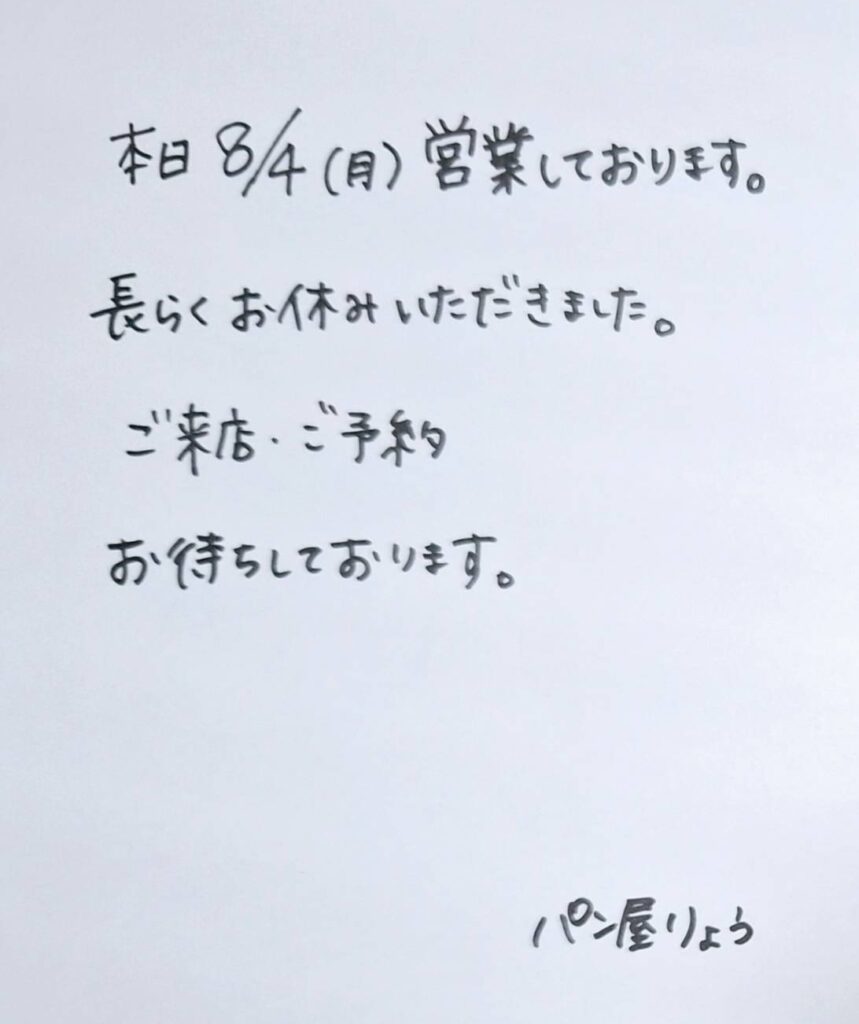 本日 8/4(月)営業しております。
長らくお休みいただきました。
ご来店・ご予約
お待ちしております。
パン屋りょう